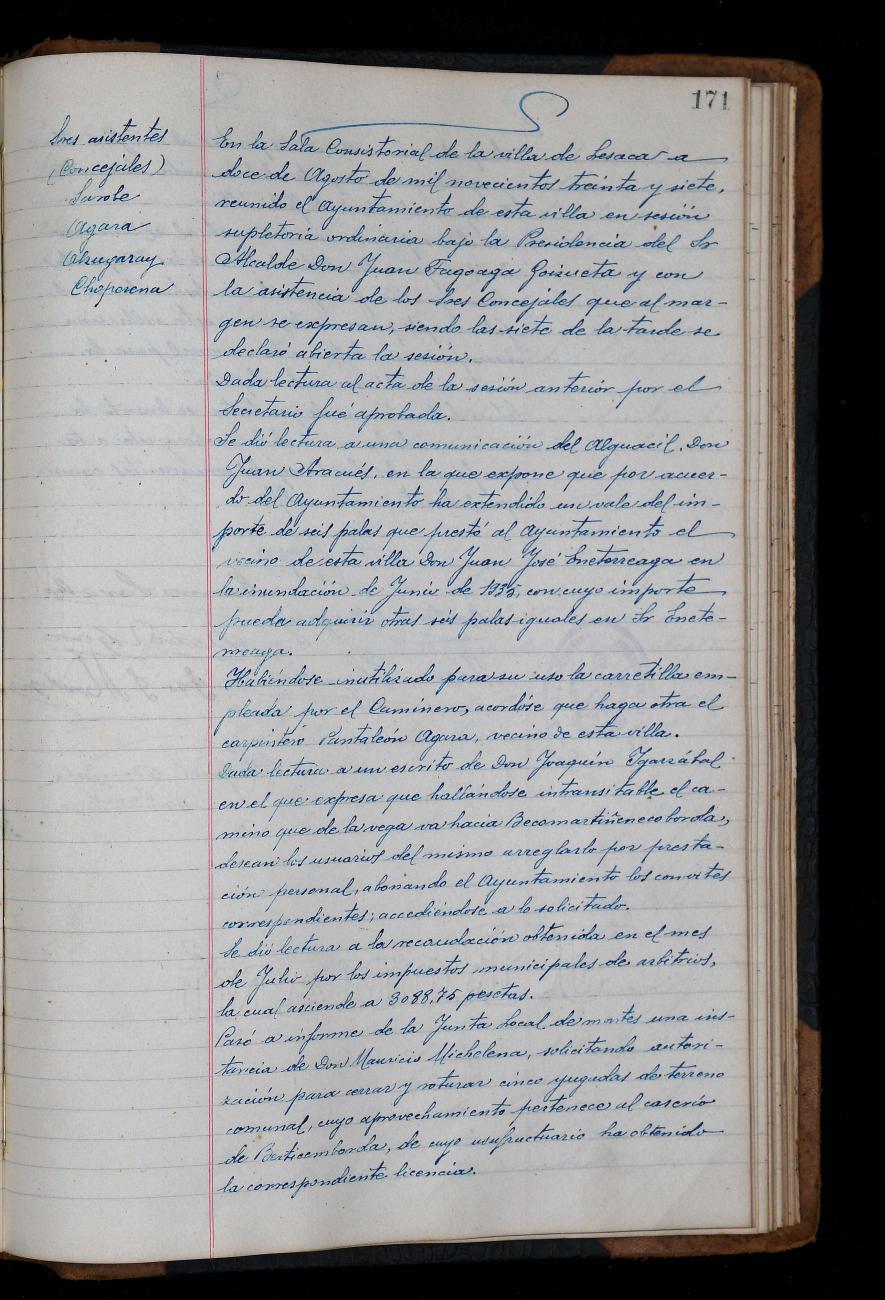 171
Sres asistentes
(Concejales)
Sarobe
Agara
Okugaray
Choperena
En la Sala Consistorial de la villa de Lesaca a
doce de Agosto de mil novecientos treinta y siete,
reunido el Ayuntamiento de esta villa en sesión
supletoria ordinaria bajo la Presidencia del Sr
Alcalde Don Juan Fagoaga Goizueta y con
la asistencia de los Sres Concejales que al mar-
gen se expresan, siendo las siete de la tarde se
declaró abierta la sesión.
Dada lectura al acta de la sesión anterior por el
Secretario fué aprobada.
Se dió lectura a una comunicación del Alguacil, Don
Juan Aracués, en la que expone que por acuer-
do del Ayuntamiento ha extendido un vale del im-
porte de seis palas que prestó al Ayuntamiento el
vecino de esta villa Don Juan José Eneterreaga en
la inundación de Junio de 1935, con cuyo importe
pueda adquirir otras seis palas iguales en Sr Enete-
rreaga.
Habiéndose inutilizado para su uso la carretilla em-
pleada por el Caminero, acordóse que haga otra el
carpintero Pantaleón Agara, vecino de esta villa.
Dada lectura a un escrito de Don Joaquín Igarzábal
en el que expresa que hallándose intransitable el ca-
mino que de la vega va hacia Becomartiñeneco borda,
desean los usuarios del mismo arreglarlo por presta-
ción personal, abonando el Ayuntamiento los convites
correspondientes; accediéndose a lo solicitado.
Se dió lectura a la recaudación obtenida en el mes
de Julio por los impuestos municipales de arbitrios,
la cual asciende a 3088,75 pesetas.
Pasó a informe de la Junta Local de montes una ins-
tancia de Don Mauricio Michelena, solicitando autori-
zación para cerrar y roturar cinco yugadas de terreno
comunal, cuyo aprovechamiento pertenece al caserío
de Berticemborda, de cuyo usufructuario ha obtenido
la correspondiente licencia.